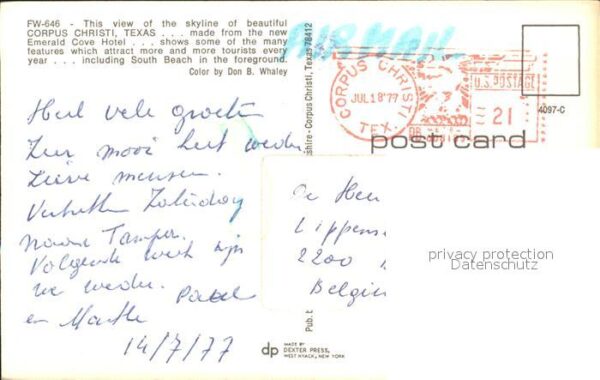 FW-646 - This view of the skyline of beautiful
CORPUS CHRISTI, TEXAS . . . made from the new
Emerald Cove Hotel . . . shows some of the many
features which attract more and more tourists every
year . . . including South Beach in the foreground.
Color by Don B. Whaley
Heel vele groeten
Zeer mooi heet weder
Lieve mensen.
Zaterdag
Tampa.
Volgende week zijn
we weder.
en
14/7/77
AIR MAIL
CORPUS CHRISTI
JUL 18'77
TEX
U.S. POSTAGE
21
4097-C
post card
shire-Corpus Christi, Texas 78412
Pub. b
De Heer
Lippens
2200
Belgi
privacy protection
Datenschutz
dp
MADE BY
DEXTER PRESS,
WEST NYACK, NEW YORK